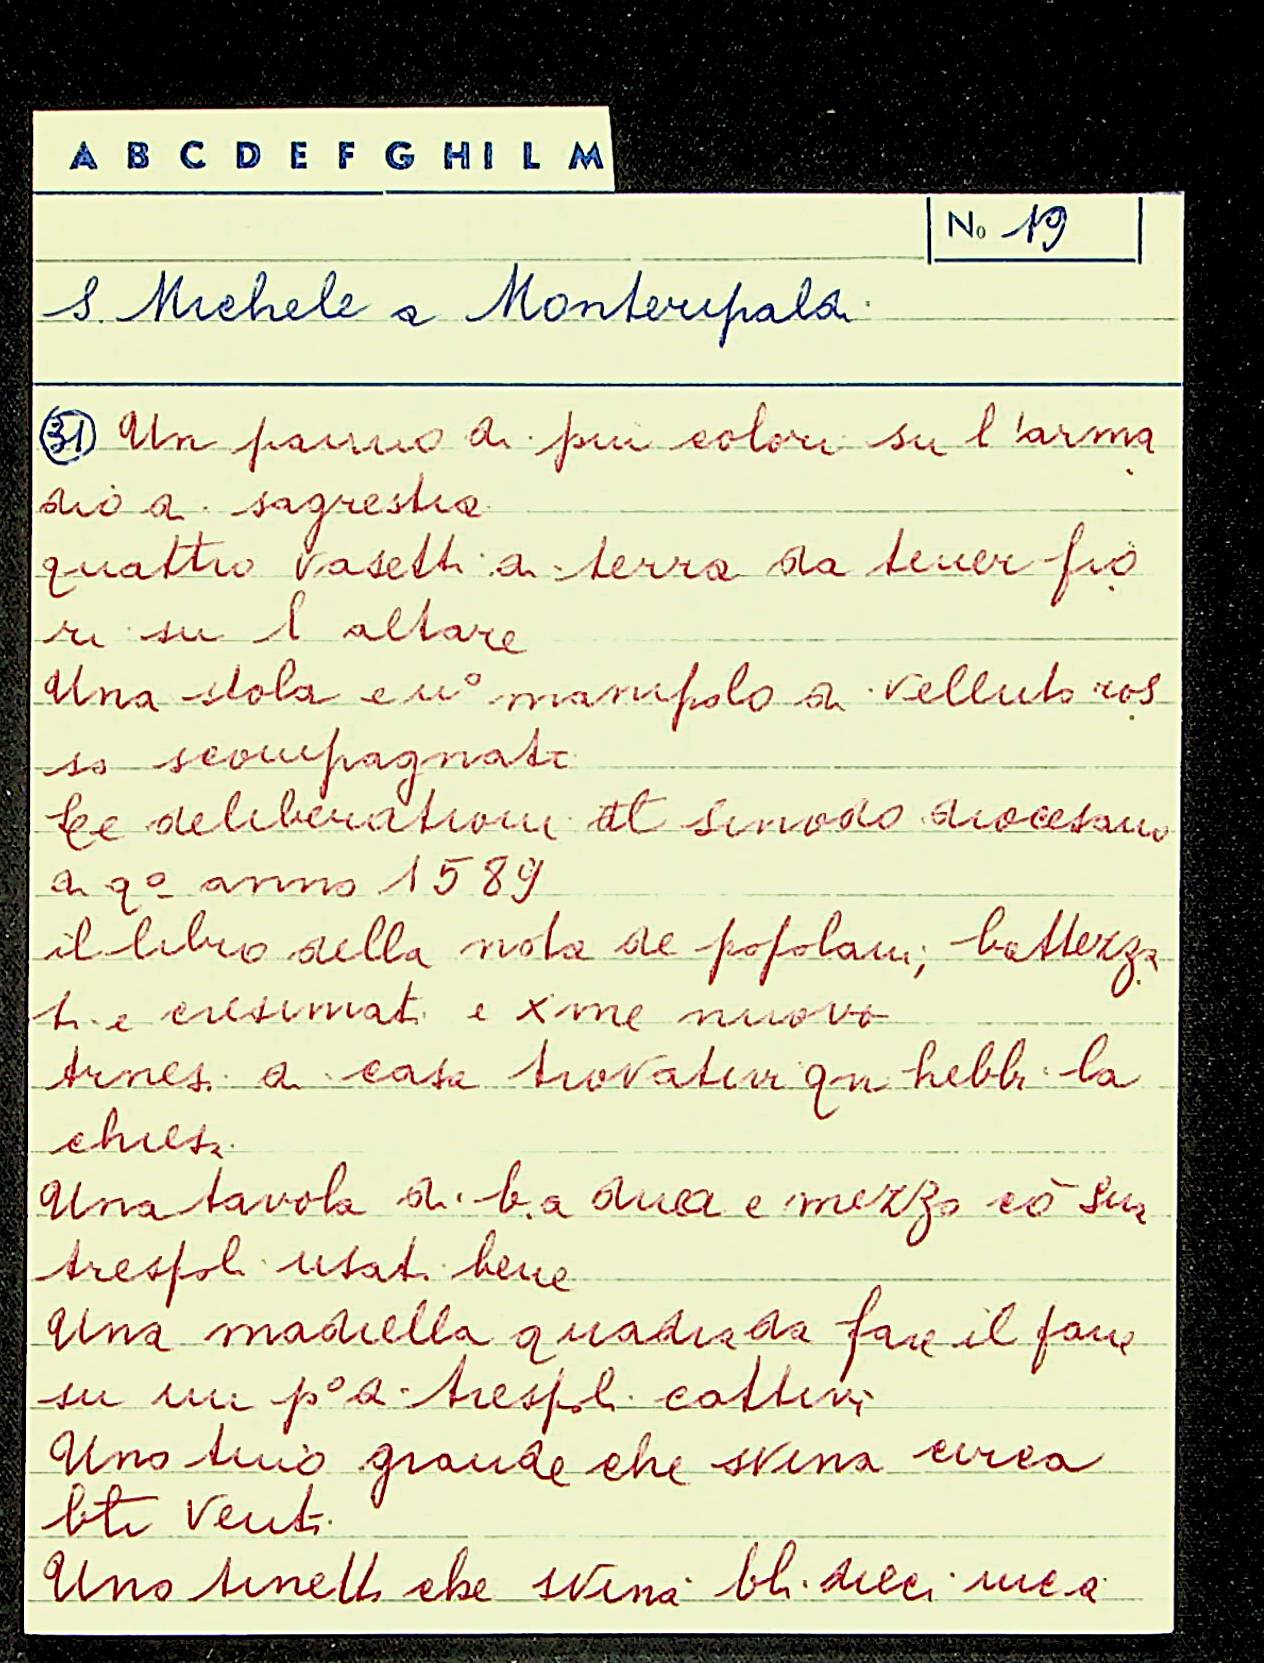 A B C D E F G H I L M
No 19
S. Michele a Monteripaldi
31 Un panno di più colori su l'arma
dio di sagrestia
quattro vasetti di terra da tener fio
ri su l altare
Una stola e uº manipolo di velluto ros
so scompagnati
Le deliberationi del sinodo diocesano
di qº anno 1589
il libro della nota de popolani, battezza
ti e cresimati e xme nuovo
Arnesi di casa trovativi qn hebbi la
chiesa
Una tavola di b.a dua e mezzo cō sua
trespoli usati bene
Una madiella quadra da fare il pane
su un pº di trespoli cattivi
Uno tino grande che svina circa
bli venti
Uno tinello che svina bli dieci